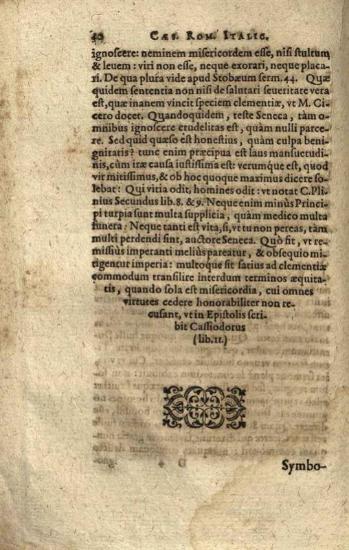 40 CÆS. ROM. ITALIC.
ignoscere: neminem misericordem esse, nisi stultum
& leuem: viri non esse, neque exorari, neque placa-
ri. De qua plura vide apud Stobæum serm. 44. Quæ
quidem sententia non nisi de salutari seueritate vera
est, quæ inanem vincit speciem clementiæ, vt M. Ci-
cero docet. Quandoquidem, teste Seneca, tàm o-
mnibus ignoscere crudelitas est, quàm nulli parce-
re. Sed quid quæso est honestius, quàm culpa beni-
gnitatis? tunc enim præcipua est laus mansuetudi-
nis, cùm iræ causa iustissima est: verumque est, quod
vir mitissimus, & ob hoc quoque maximus dicere so-
lebat: Qui vitia odit, homines odit: vt notat C. Pli-
nius Secundus lib. 8. & 9. Neque enim minùs Princi-
pi turpia sunt multa supplicia, quàm medico multa
funera: Neque tanti est vita, si, vt tu non pereas, tàm
multi perdendi sint, auctore Seneca. Quò fit, vt re-
missiùs imperanti meliùs pareatur, & obsequio mi-
tigentur imperia: multoque sit satius ad clementiæ
commodum transilire interdum terminos æquita-
tis, quando sola est misericordia, cui omnes
virtutes cedere honorabiliter non re-
cusant, vt in Epistolis scri-
bit Cassiodorus
(lib. 11.)
Symbo-